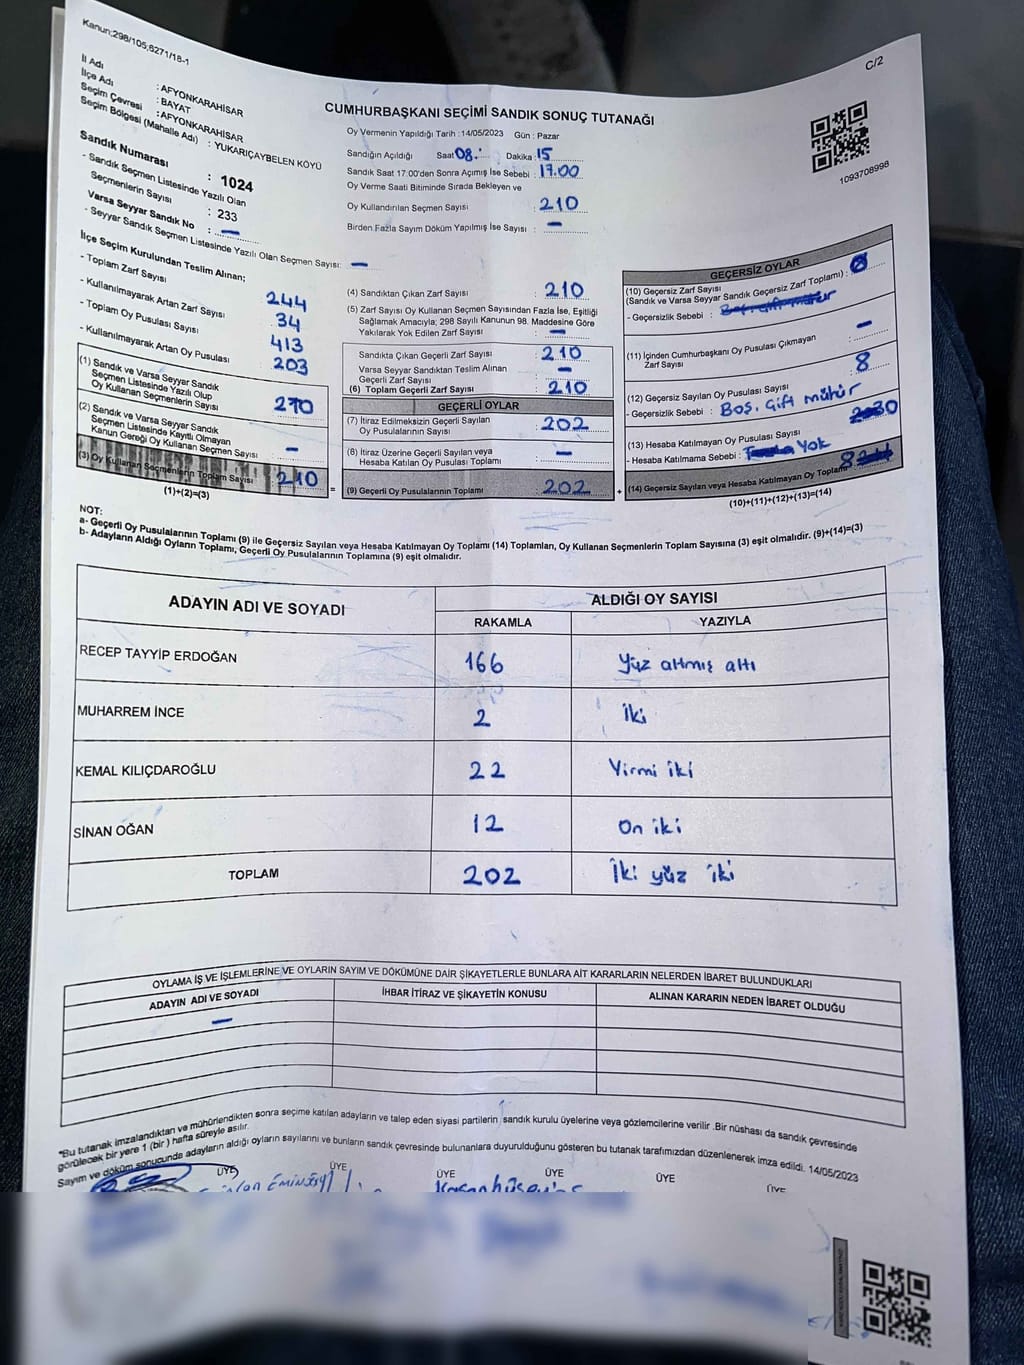 Kanun;298/105,6271/18-1
C/2
İl Adı : AFYONKARAHİSAR
İlçe Adı : BAYAT
Seçim Çevresi : AFYONKARAHİSAR
Seçim Bölgesi (Mahalle Adı) : YUKARIÇAYBELEN KÖYÜ
Sandık Numarası : 1024
- Sandık Seçmen Listesinde Yazılı Olan
Seçmenlerin Sayısı : 233
Varsa Seyyar Sandık No : —
- Seyyar Sandık Seçmen Listesinde Yazılı Olan Seçmen Sayısı: —
CUMHURBAŞKANI SEÇİMİ SANDIK SONUÇ TUTANAĞI
Oy Vermenin Yapıldığı Tarih : 14/05/2023 Gün : Pazar
Sandığın Açıldığı Saat 08. Dakika : 15
Sandık Saat 17:00'den Sonra Açımış İse Sebebi : 17.00
Oy Verme Saati Bitiminde Sırada Bekleyen ve
Oy Kullandırılan Seçmen Sayısı : 210
Birden Fazla Sayım Döküm Yapılmış İse Sayısı : —
1093708998
İlçe Seçim Kurulundan Teslim Alınan;
- Toplam Zarf Sayısı 244
- Kullanılmayarak Artan Zarf Sayısı : 34
- Toplam Oy Pusulası Sayısı : 413
- Kullanılmayarak Artan Oy Pusulası : 203
(1) Sandık ve Varsa Seyyar Sandık
Seçmen Listesinde Yazılı Olup
Oy Kullanan Seçmenlerin Sayısı : 210
(2) Sandık ve Varsa Seyyar Sandık
Seçmen Listesinde Kayıtlı Olmayan
Kanun Gereği Oy Kullanan Seçmen Sayısı : —
(3) Oy Kullanan Seçmenlerin Toplam Sayısı : 210
(1)+(2)=(3)
(4) Sandıktan Çıkan Zarf Sayısı : 210
(5) Zarf Sayısı Oy Kullanan Seçmen Sayısından Fazla İse, Eşitliği
Sağlamak Amacıyla; 298 Sayılı Kanunun 98. Maddesine Göre
Yakılarak Yok Edilen Zarf Sayısı : —
Sandıkta Çıkan Geçerli Zarf Sayısı : 210
Varsa Seyyar Sandıktan Teslim Alınan
Geçerli Zarf Sayısı : —
(6) Toplam Geçerli Zarf Sayısı : 210
GEÇERLİ OYLAR
(7) İtiraz Edilmeksizin Geçerli Sayılan
Oy Pusulalarının Sayısı : 202
(8) İtiraz Üzerine Geçerli Sayılan veya
Hesaba Katılan Oy Pusulası Toplamı : —
= (9) Geçerli Oy Pusulalarının Toplamı : 202 +
GEÇERSİZ OYLAR
(10) Geçersiz Zarf Sayısı
(Sandık ve Varsa Seyyar Sandık Geçersiz Zarf Toplamı) :
- Geçersizlik Sebebi :
(11) İçinden Cumhurbaşkanı Oy Pusulası Çıkmayan
Zarf Sayısı : —
(12) Geçersiz Sayılan Oy Pusulası Sayısı : 8
- Geçersizlik Sebebi : Boş. Gift mühür
(13) Hesaba Katılmayan Oy Pusulası Sayısı
- Hesaba Katılmama Sebebi : Yok
(14) Geçersiz Sayılan veya Hesaba Katılmayan Oy Toplamı 8
(10)+(11)+(12)+(13)=(14)
NOT:
a- Geçerli Oy Pusulalarının Toplamı (9) ile Geçersiz Sayılan veya Hesaba Katılmayan Oy Toplamı (14) Toplamları, Oy Kullanan Seçmenlerin Toplam Sayısına (3) eşit olmalıdır. (9)+(14)=(3)
b- Adayların Aldığı Oyların Toplamı, Geçerli Oy Pusulalarının Toplamına (9) eşit olmalıdır.
ADAYIN ADI VE SOYADI
ALDIĞI OY SAYISI
RAKAMLA YAZIYLA
RECEP TAYYİP ERDOĞAN 166 Yüz altmış altı
MUHARREM İNCE 2 İki
KEMAL KILIÇDAROĞLU 22 Yirmi iki
SİNAN OĞAN 12 On iki
TOPLAM 202 İki yüz iki
OYLAMA İŞ VE İŞLEMLERİNE VE OYLARIN SAYIM VE DÖKÜMÜNE DAİR ŞİKAYETLERLE BUNLARA AİT KARARLARIN NELERDEN İBARET BULUNDUKLARI
ADAYIN ADI VE SOYADI İHBAR İTİRAZ VE ŞİKAYETİN KONUSU ALINAN KARARIN NEDEN İBARET OLDUĞU
—
*Bu tutanak imzalandıktan ve mühürlendikten sonra seçime katılan adayların ve talep eden siyasi partilerin sandık kurulu üyelerine veya gözlemcilerine verilir .Bir nüshası da sandık çevresinde
görülecek bir yere 1 (bir ) hafta süreyle asılır.
Sayım ve döküm sonucunda adayların aldığı oyların sayılarını ve bunların sandık çevresinde bulunanlara duyurulduğunu gösteren bu tutanak tarafımızdan düzenlenerek imza edildi. 14/05/2023
ÜYE ÜYE ÜYE ÜYE ÜYE ÜYE